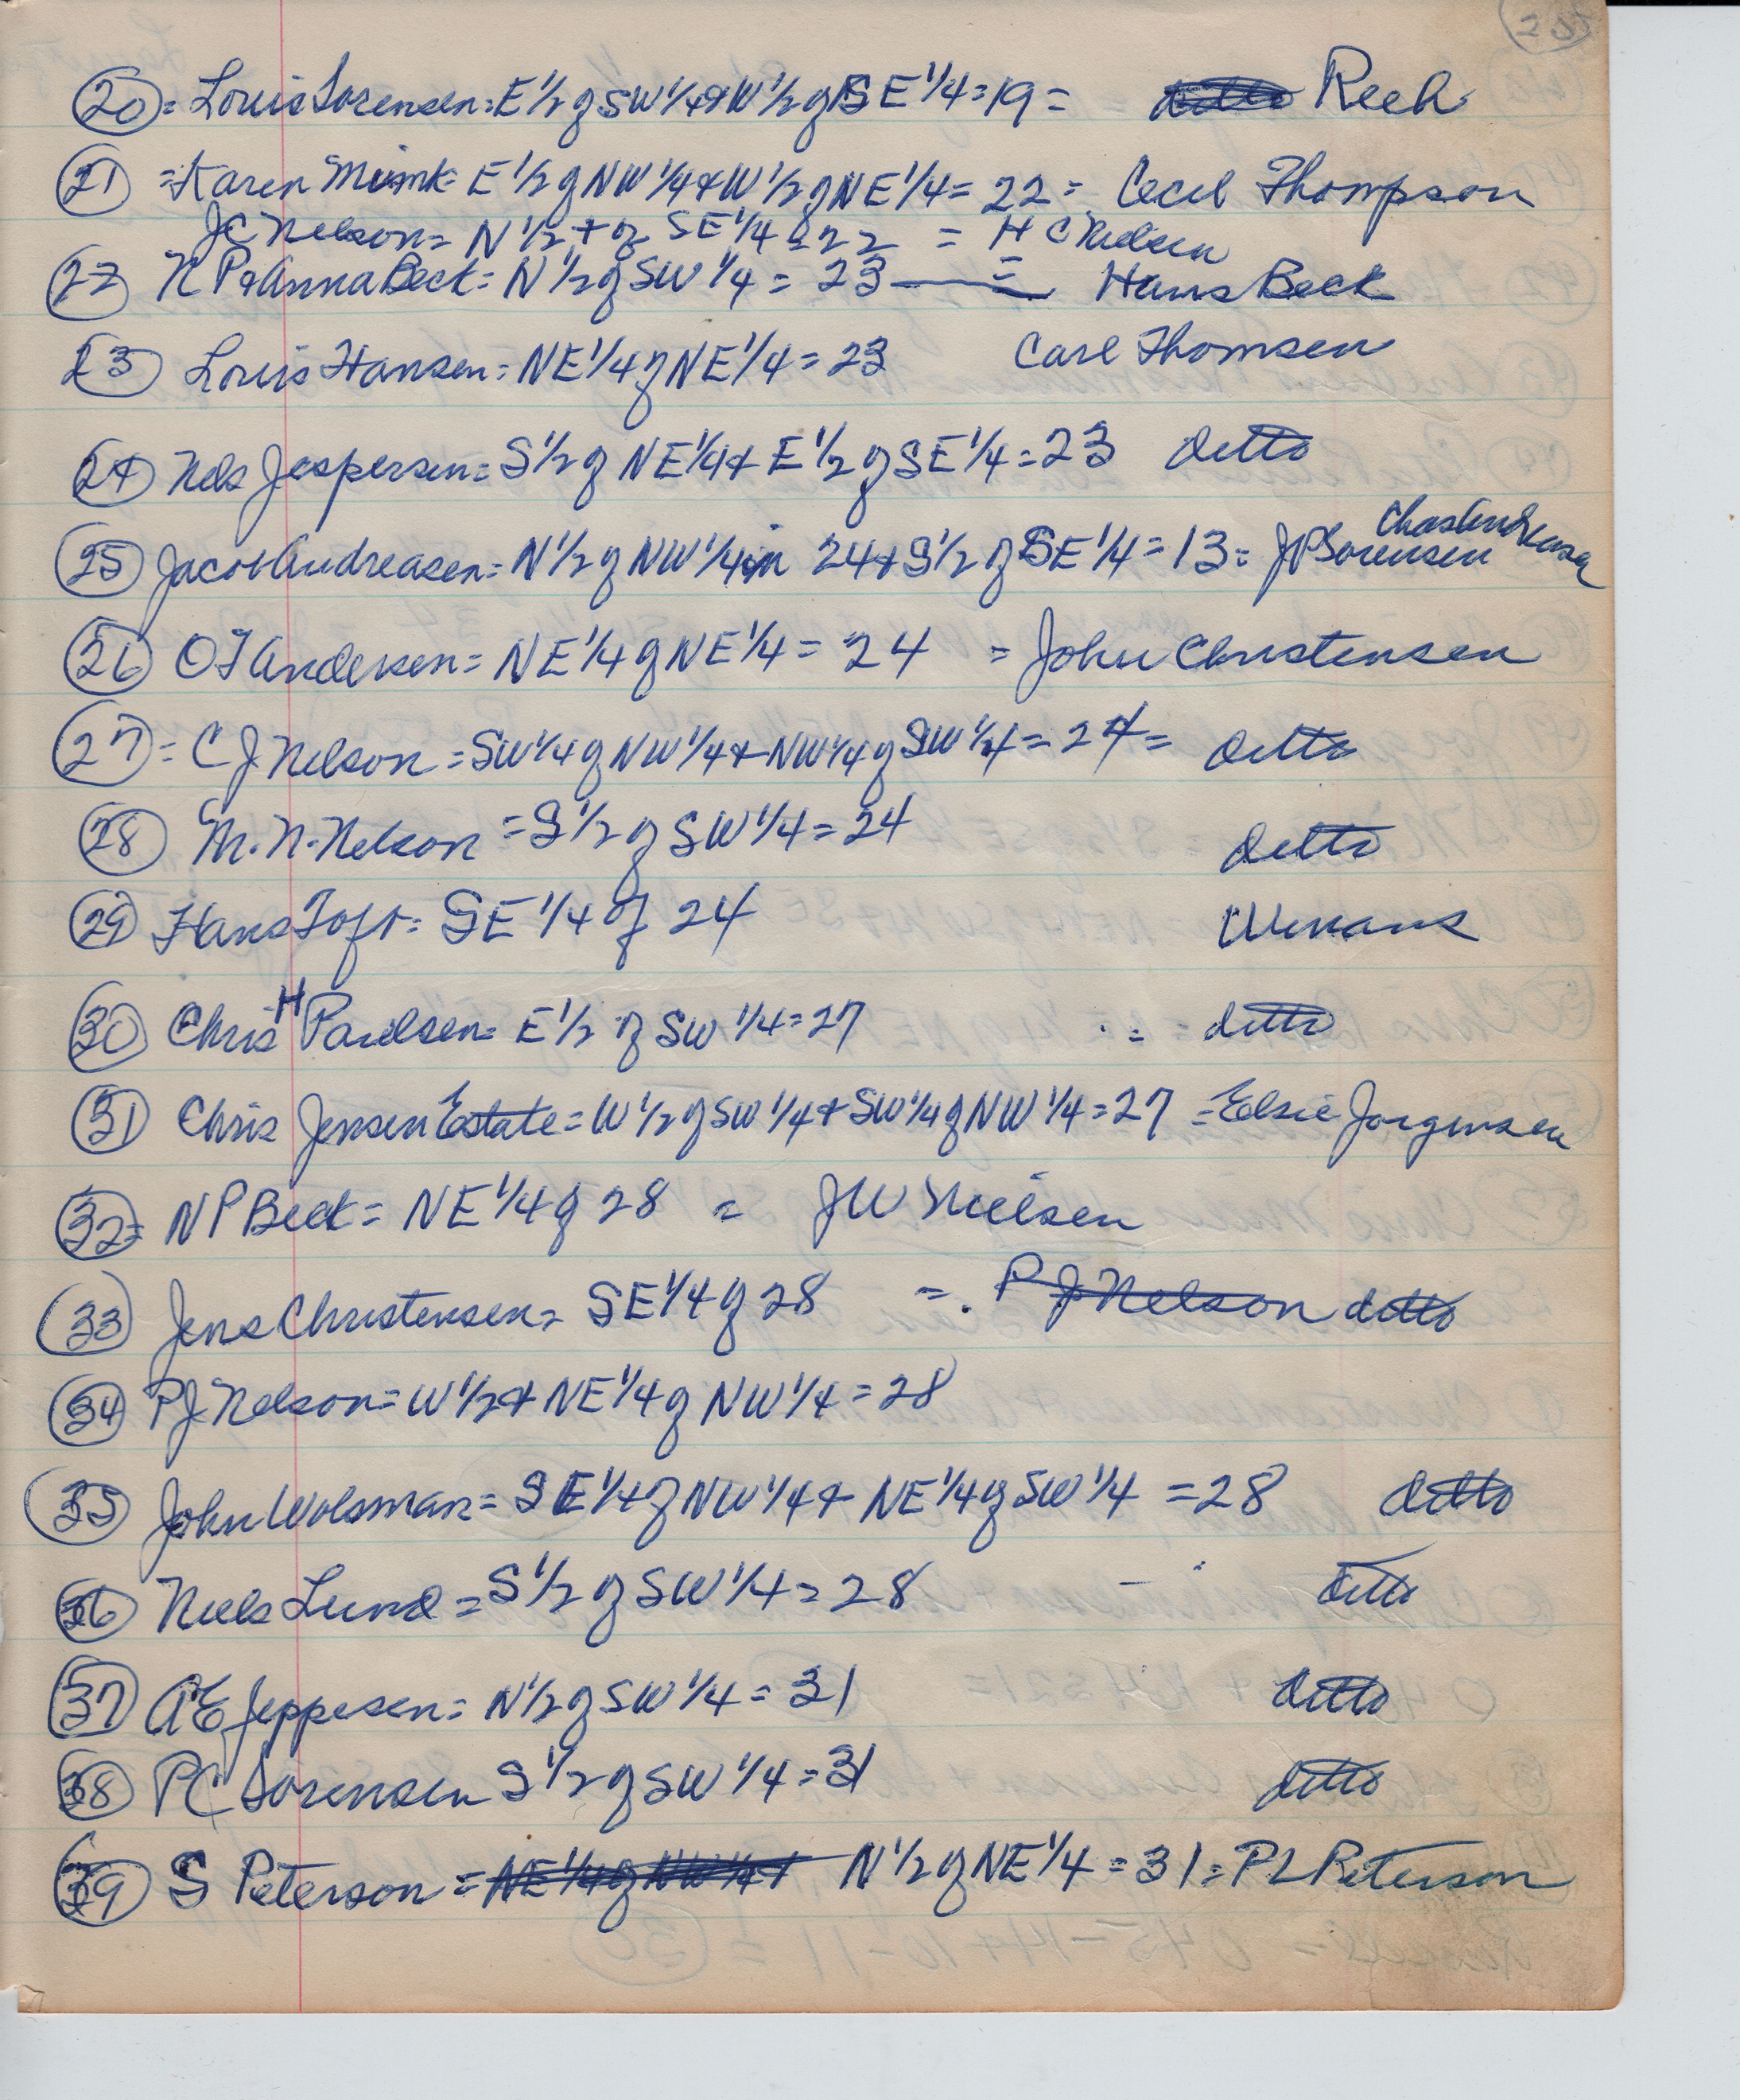 (20) = Louis Sorensen = E 1/2 of SW 1/4 + W 1/2 of SE 1/4 = 19 = ditto Reeh
(21) = Karen Munk = E 1/2 of NW 1/4 + W 1/2 of NE 1/4 = 22 = Cecil Thompson
JC Nelson = N 1/2 + of SE 1/4 = 22 = H C Nielsen
(22) N P + Anna Beck = N 1/2 of SW 1/4 = 23 — = Hans Beck
(23) Louis Hansen = NE 1/4 of NE 1/4 = 23 Carl Thomsen
(24) Nels Jespersen = S 1/2 of NE 1/4 + E 1/2 of SE 1/4 = 23 ditto
(25) Jacob Andreasen = N 1/2 of NW 1/4 in 24 + S 1/2 of SE 1/4 = 13 = JP Sorensen Chas Andreasen
(26) OJ Andersen = NE 1/4 of NE 1/4 = 24 = John Christensen
(27) = C J Nelson = SW 1/4 of NW 1/4 + NW 1/4 of SW 1/4 = 24 = ditto
(28) M. N. Nelson = S 1/2 of SW 1/4 = 24 ditto
(29) Hans Toft = SE 1/4 of 24 Winans
(30) Chris H Paulsen = E 1/2 of SW 1/4 = 27 = ditto
(31) Chris Jensen Estate = W 1/2 of SW 1/4 + SW 1/4 of NW 1/4 = 27 = Elsie Jorgensen
(32) = N P Beck = NE 1/4 of 28 = JW Nielsen
(33) Jens Christensen = SE 1/4 of 28 = P J Nelson ditto
(34) PJ Nelson = W 1/2 + NE 1/4 of NW 1/4 = 28
(35) John Wolsman = SE 1/4 of NW 1/4 + NE 1/4 of SW 1/4 = 28 ditto
(36) Niels Lund = S 1/2 of SW 1/4 = 28 ditto
(37) AE Jeppesen = N 1/2 of SW 1/4 = 31 ditto
(38) PC Sorensen S 1/2 of SW 1/4 = 31 ditto
(39) S Peterson = NE 1/4 of NW 1/4 + N 1/2 of NE 1/4 = 31 = PL Peterson